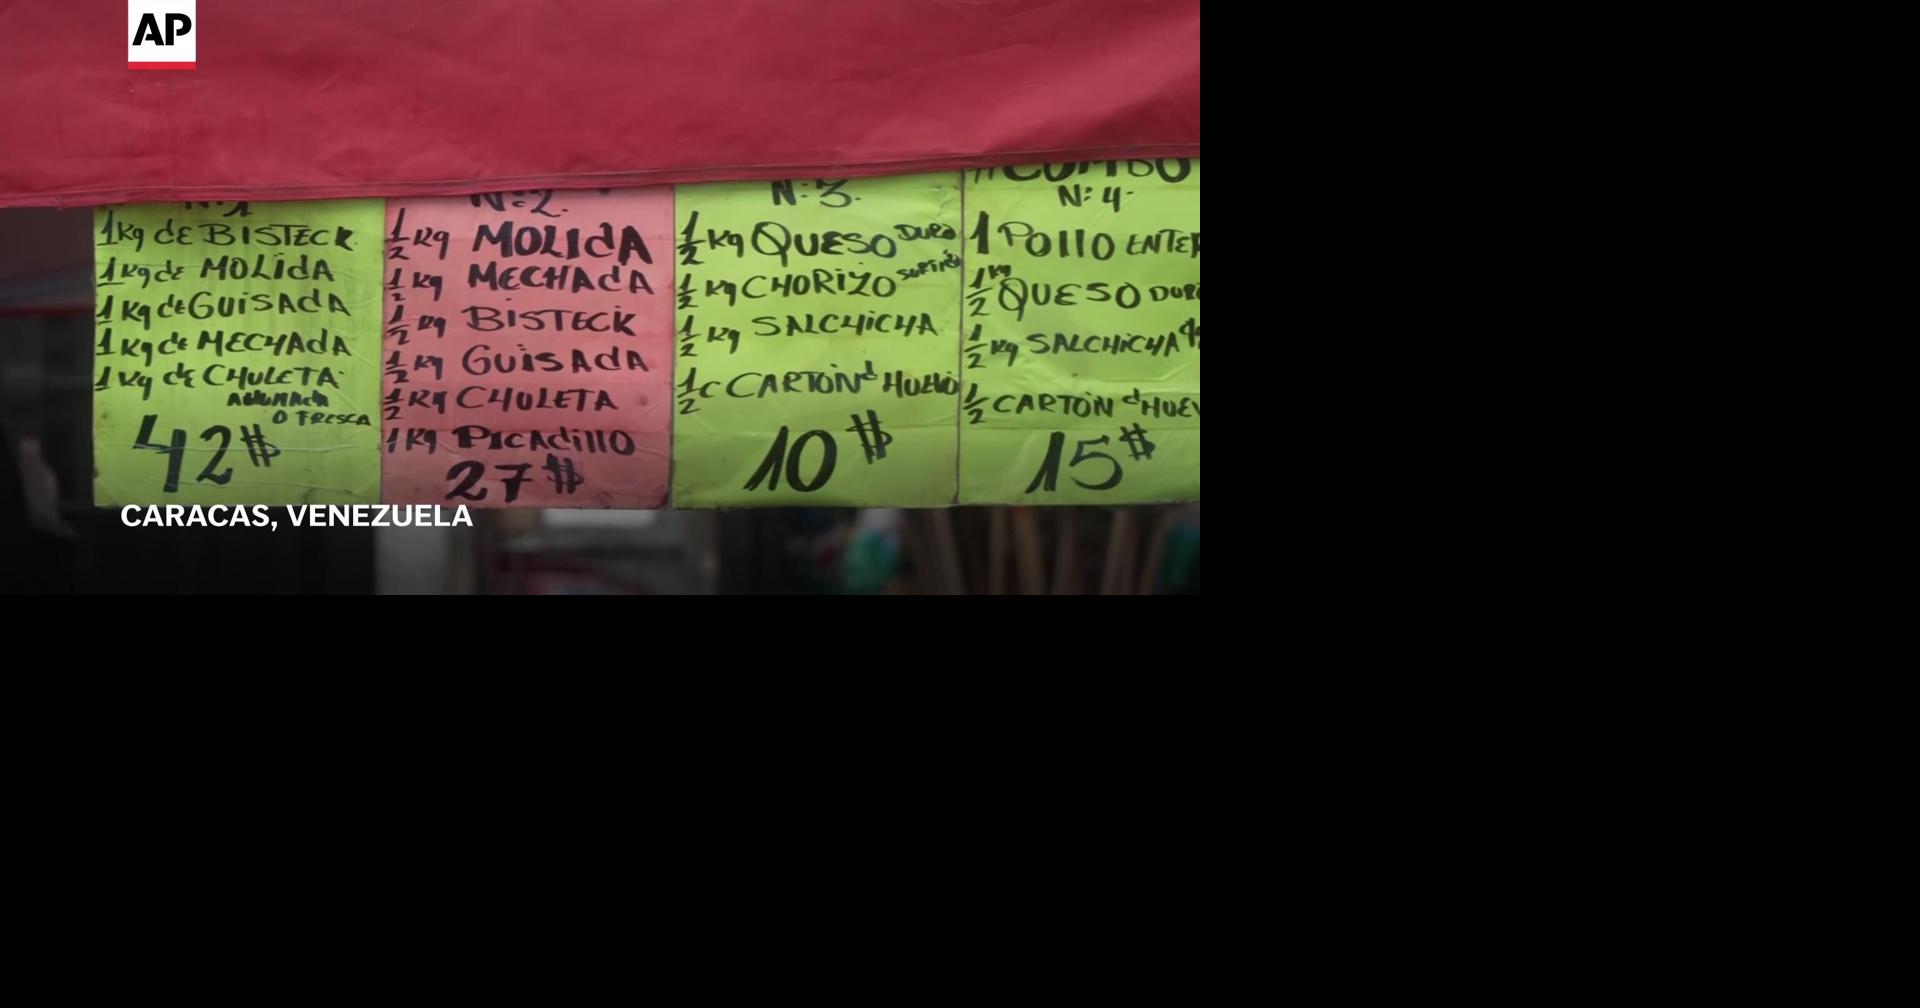 AP
N:1
1Kg dE BISTECK
1Kg de MOLidA
1Kg de GUiSAdA
1Kg de MECHAdA
1Kg dE CHULETA
AHUMAdA
O FRESCA
42$
N:2.
1/2 Kg MOLIdA
1/2 Kg MECHAdA
1/2 Kg BISTECK
1/2 Kg GUiSAdA
1/2 Kg CHULETA
1Kg PICAdillO
27$
N:3.
1/2 Kg QUESO DURO
1/2 Kg CHORIZO SURTIdO
1/2 Kg SALCHiCHA
1/2 C CARTÓN d HUEVO
10$
COMBO
N:4.
1 POllO ENTE
1/2 Kg QUESO DUR
1/2 Kg SALCHICHA
1/2 CARTÓN d HUEV
15$
CARACAS, VENEZUELA